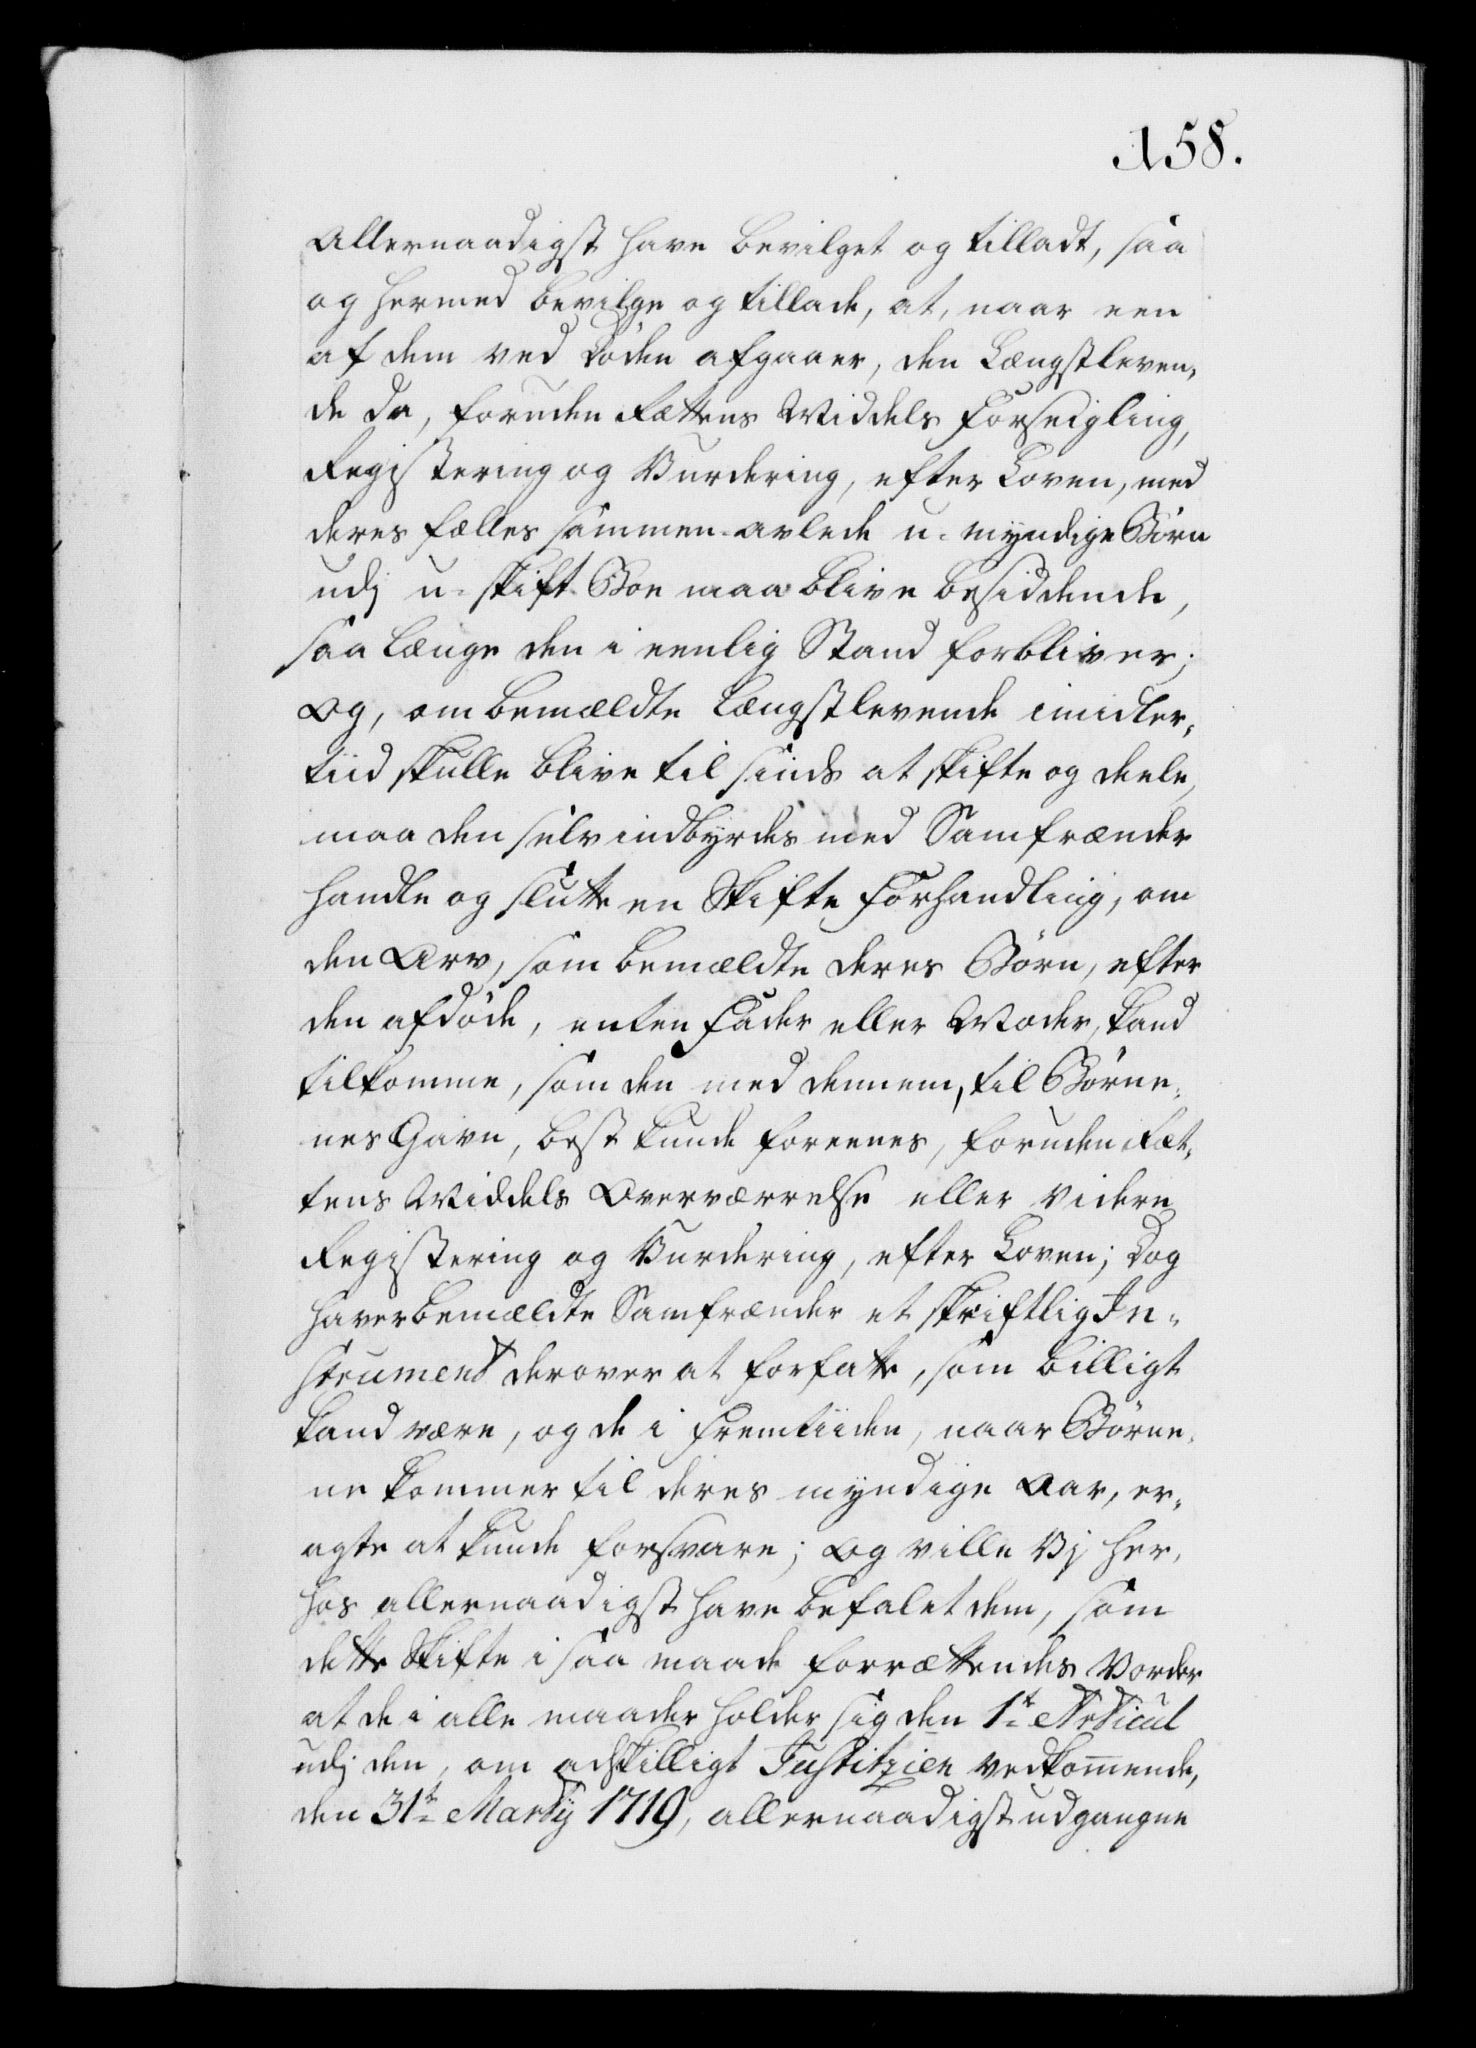 158.
Allernaadigst have bevilget og tilladt, saa
og hermed bevilge og tillade, at, naar een
af dem ved Døden afgaaer, den Længstleven-
de da, foruden Rættens Middels Forseigling,
Registering og Vurdering, efter Loven, med
deres fælles sammen-avlede u-myndige Børn
udj u-skift Boe maa blive besiddende,
saa længe den i eenlig Stand forbliver;
Og, om bemældte Længstlevende imidler-
tiid skulle blive til sinds at skifte og deele,
maa den selv indbyrdes med Samfrænder
handle og slutte en Skifte Forhandling, om
den Arv, som bemældte deres Børn, efter
den afdøde, enten Fader eller Moder, kand
tilkomme, som den med dennem, til Børne-
nes Gavn, best kunde foreenes, foruden Ræt-
tens Middels Overværrelse eller videre
Registering og Vurdering, efter Loven; Dog
haver bemældte Samfrænder et skriftlig In-
strument derover at forfatte, som billigt
kand være, og de i Fremtiiden, naar Børne-
ne kommer til deres myndige Aar, er-
agte at kunde forsvare; Og ville Vj her-
hos allernaadigst have befalet dem, som
dette Skifte i saa maade forrættendes Vorder
at de i alle maader holder sig den 1te Articul
udj den, om adskilligt Justitzien vedkom̅ende,
den 31te Martij 1719, allernaadigst udgangne